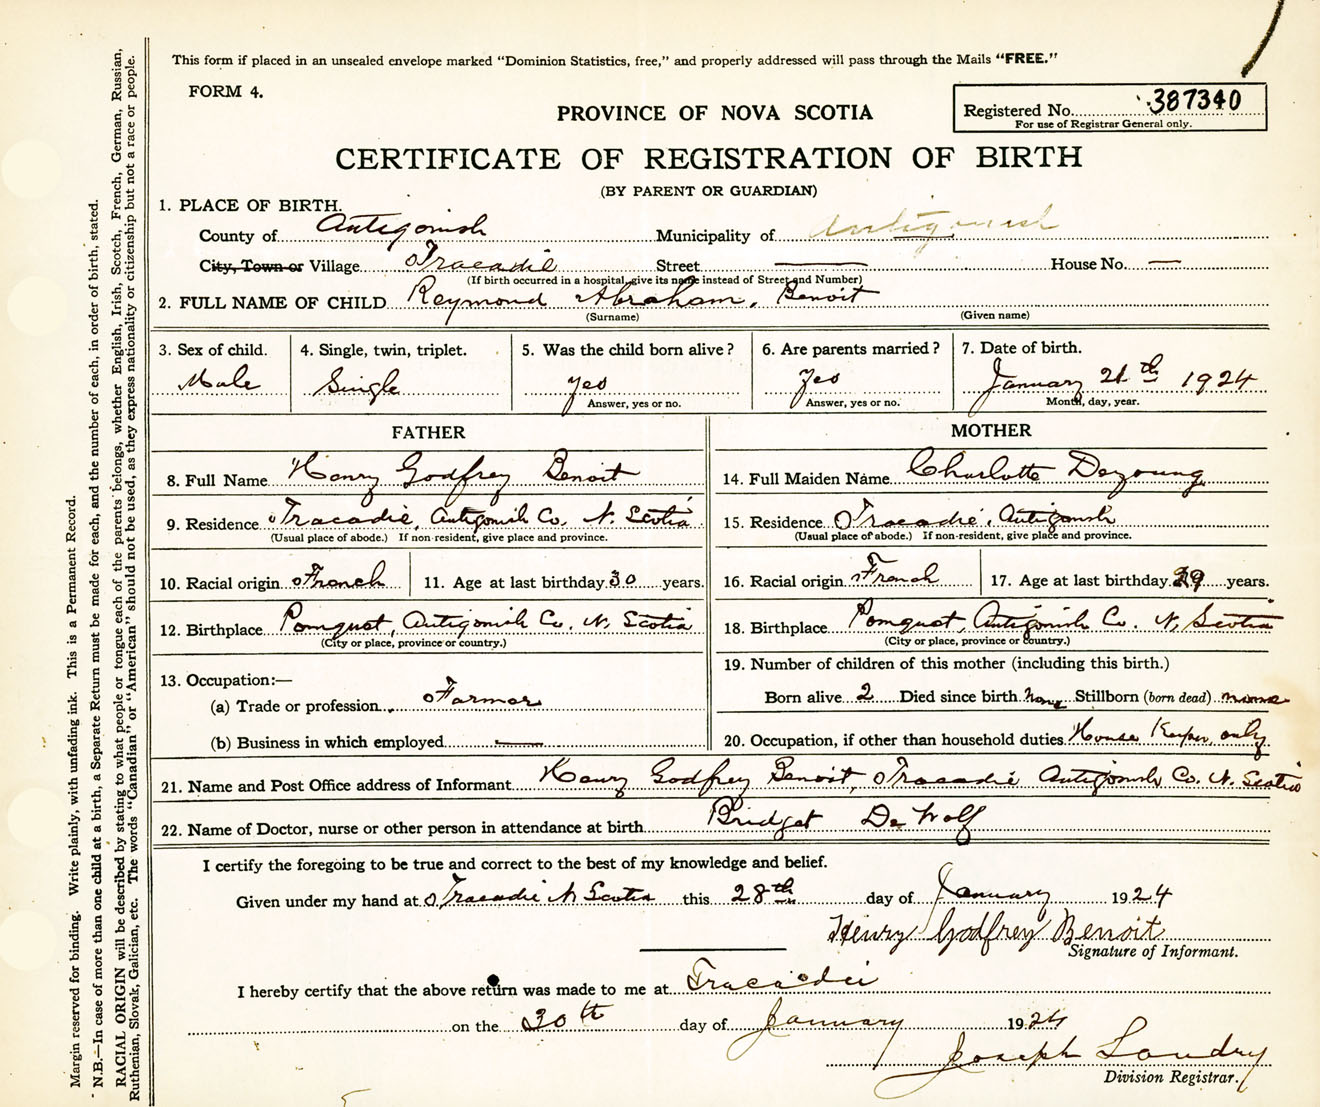 This form if placed in an unsealed envelope marked “Dominion Statistics, free,” and properly addressed will pass through the Mails “FREE.”
FORM 4.
PROVINCE OF NOVA SCOTIA
Registered No. 387340
For use of Registrar General only.
CERTIFICATE OF REGISTRATION OF BIRTH
(BY PARENT OR GUARDIAN)
1. PLACE OF BIRTH.
County of Antigonish Municipality of Antigonish
City, Town or Village Tracadie Street — House No. —
(If birth occurred in a hospital, give its name instead of Street and Number)
2. FULL NAME OF CHILD Reymond Abraham, Benoit
(Surname) (Given name)
3. Sex of child. 4. Single, twin, triplet. 5. Was the child born alive? 6. Are parents married? 7. Date of birth.
Male Single yes yes January 21th 1924
Answer, yes or no. Answer, yes or no. Month, day, year.
FATHER MOTHER
8. Full Name Henry Godfrey Benoit 14. Full Maiden Name Charlotte Deyoung
9. Residence Tracadie, Antigonish Co. N. Scotia 15. Residence Tracadie, Antigonish
(Usual place of abode.) If non-resident, give place and province. (Usual place of abode.) If non-resident, give place and province.
10. Racial origin French 11. Age at last birthday 30 years. 16. Racial origin French 17. Age at last birthday 29 years.
12. Birthplace Pomquet, Antigonish Co. N. Scotia 18. Birthplace Pomquet, Antigonish Co. N. Scotia
(City or place, province or country.) (City or place, province or country.)
19. Number of children of this mother (including this birth.)
13. Occupation:—
(a) Trade or profession Farmer Born alive 2 Died since birth none Stillborn (born dead) none
(b) Business in which employed — 20. Occupation, if other than household duties House Keeper, only
21. Name and Post Office address of Informant Henry Godfrey Benoit, Tracadie Antigonish Co. N. Scotia
22. Name of Doctor, nurse or other person in attendance at birth Bridget De Wolf
I certify the foregoing to be true and correct to the best of my knowledge and belief.
Given under my hand at Tracadie N Scotia this 28th day of January 1924
Henry Godfrey Benoit
Signature of Informant.
I hereby certify that the above return was made to me at Tracadie
on the 30th day of January 1924
Joseph Landry
Division Registrar.
Margin reserved for binding. Write plainly, with unfading ink. This is a Permanent Record.
N.B.—In case of more than one child at a birth, a Separate Return must be made for each, and the number of each, in order of birth, stated.
RACIAL ORIGIN will be described by stating to what people or tongue each of the parents belongs, whether English, Irish, Scotch, French, German, Russian,
Ruthenian, Slovak, Galician, etc. The words “Canadian” or “American” should not be used, as they express nationality or citizenship but not a race or people.